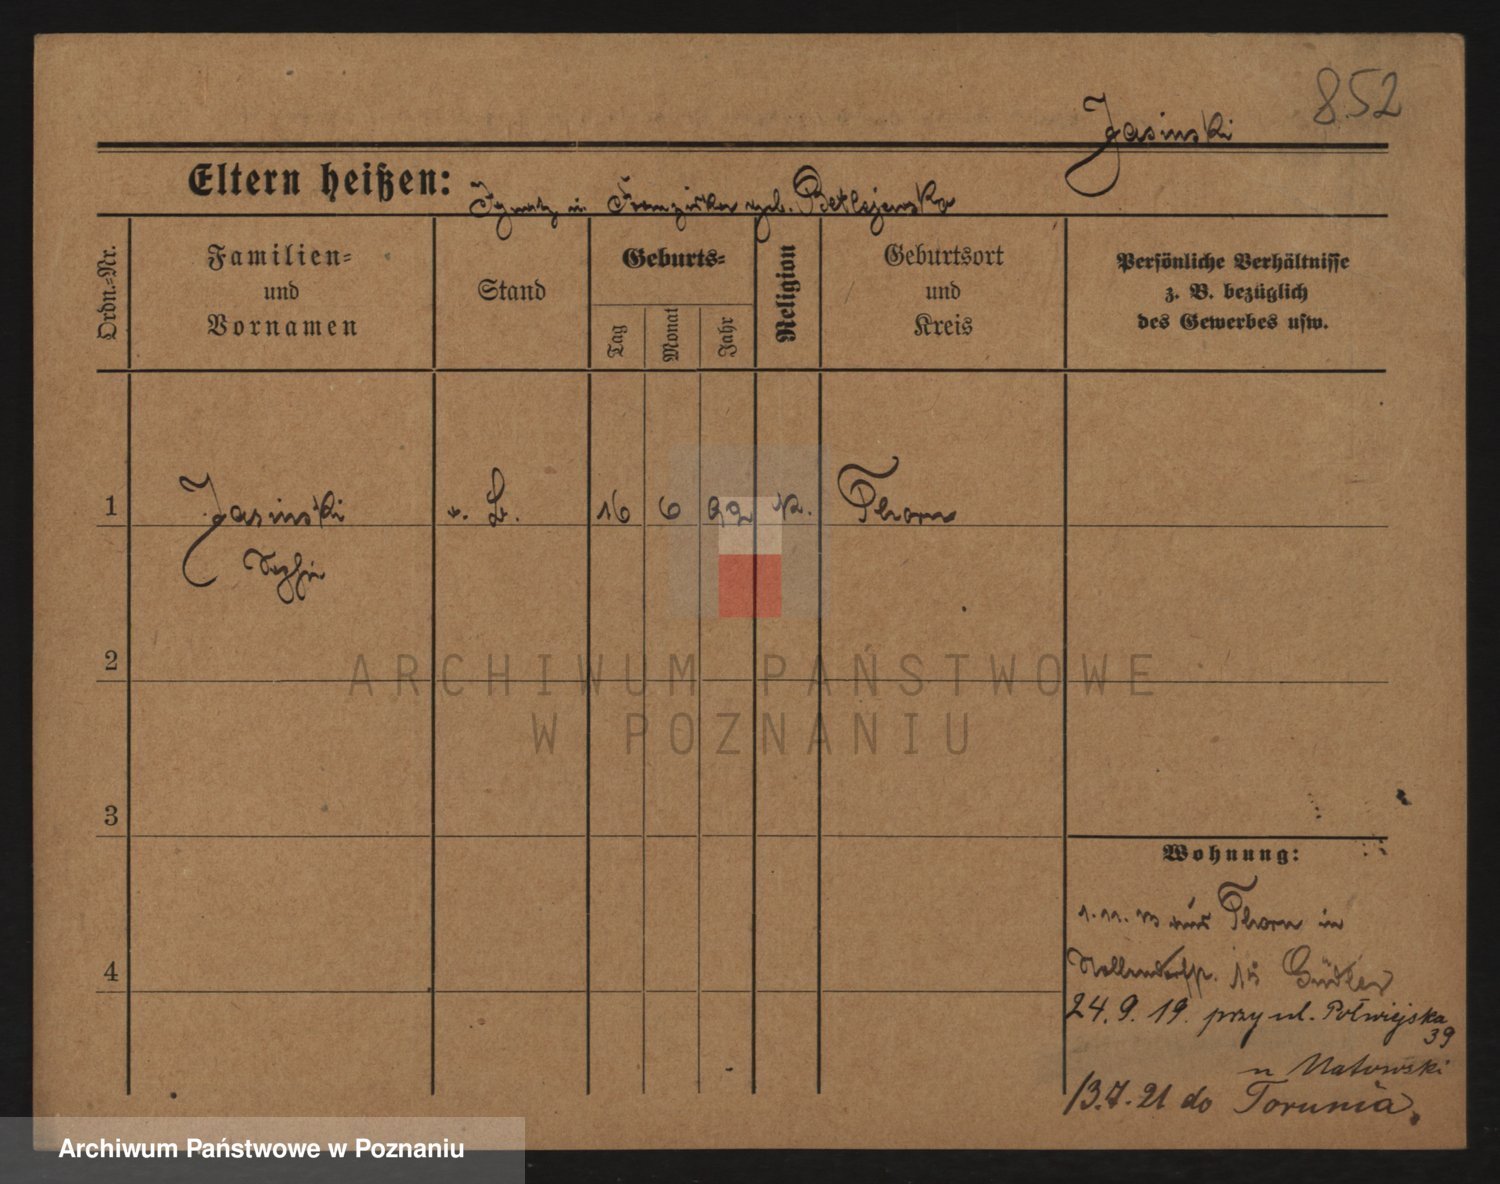 852
Jasinski
Eltern heißen: Ignatz u. Franziska geb. Betlejewska
Ordn.-Nr.
Familien-
und
Vornamen
Stand
Geburts-
Tag
Monat
Jahr
Religion
Geburtsort
und
Kreis
Persönliche Verhältnisse
z. B. bezüglich
des Gewerbes usw.
1 Jasinski 16 6 92 K. Thorn
2
3
4
ARCHIWUM PAŃSTWOWE
W POZNANIU
Wohnung:
1. 11. 13 aus Thorn in
15
24. 9. 19. przy ul. Półwiejska
39
u Natowski
13.7.21 do Torunia.
Archiwum Państwowe w Poznaniu